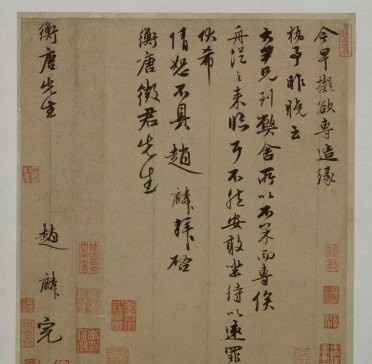 今早擬欲專造緣
昨晚云
大尹兄到弊舍所以不果而專俟
舟從之來臨耳不然安敢坐待以速罪
伏希
情恕不具趙麟拜啓
衡唐徵君先生
衡唐先生 趙麟完